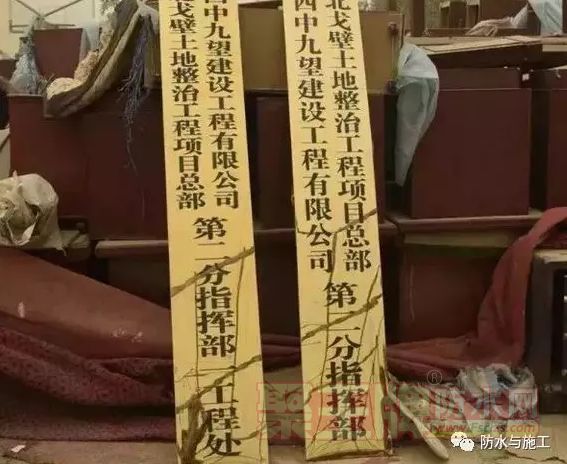 戈壁土地整治工程项目总部
四中九望建设工程有限公司
第二分指挥部
一工程处
北戈壁土地整治工程项目总部
四中九望建设工程有限公司
第二分指挥部
防水网
防水与施工